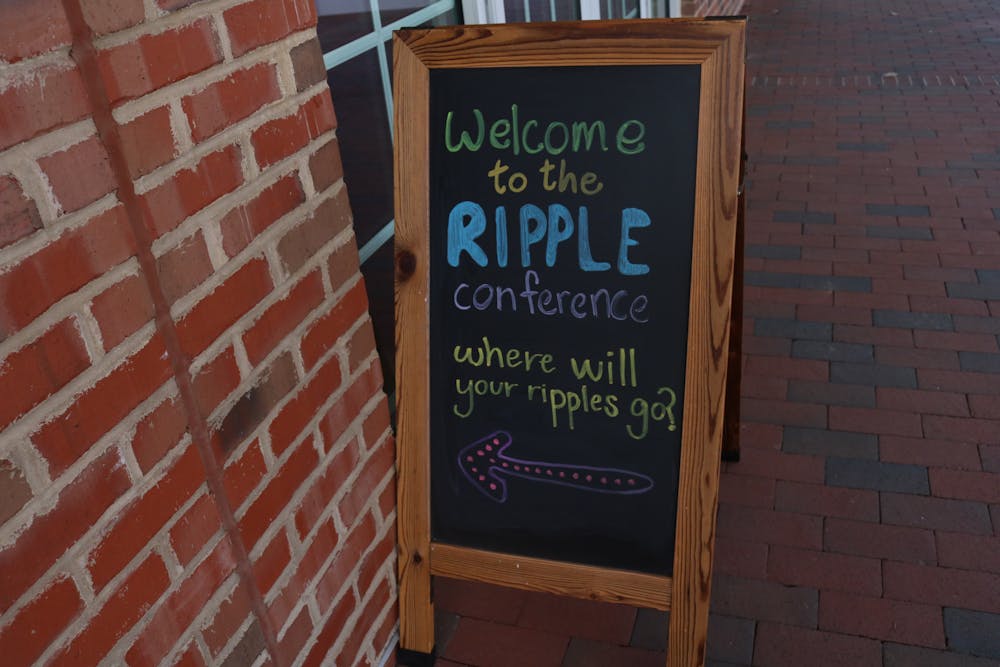 Welcome
to the
RIPPLE
conference
where will
your ripples go?